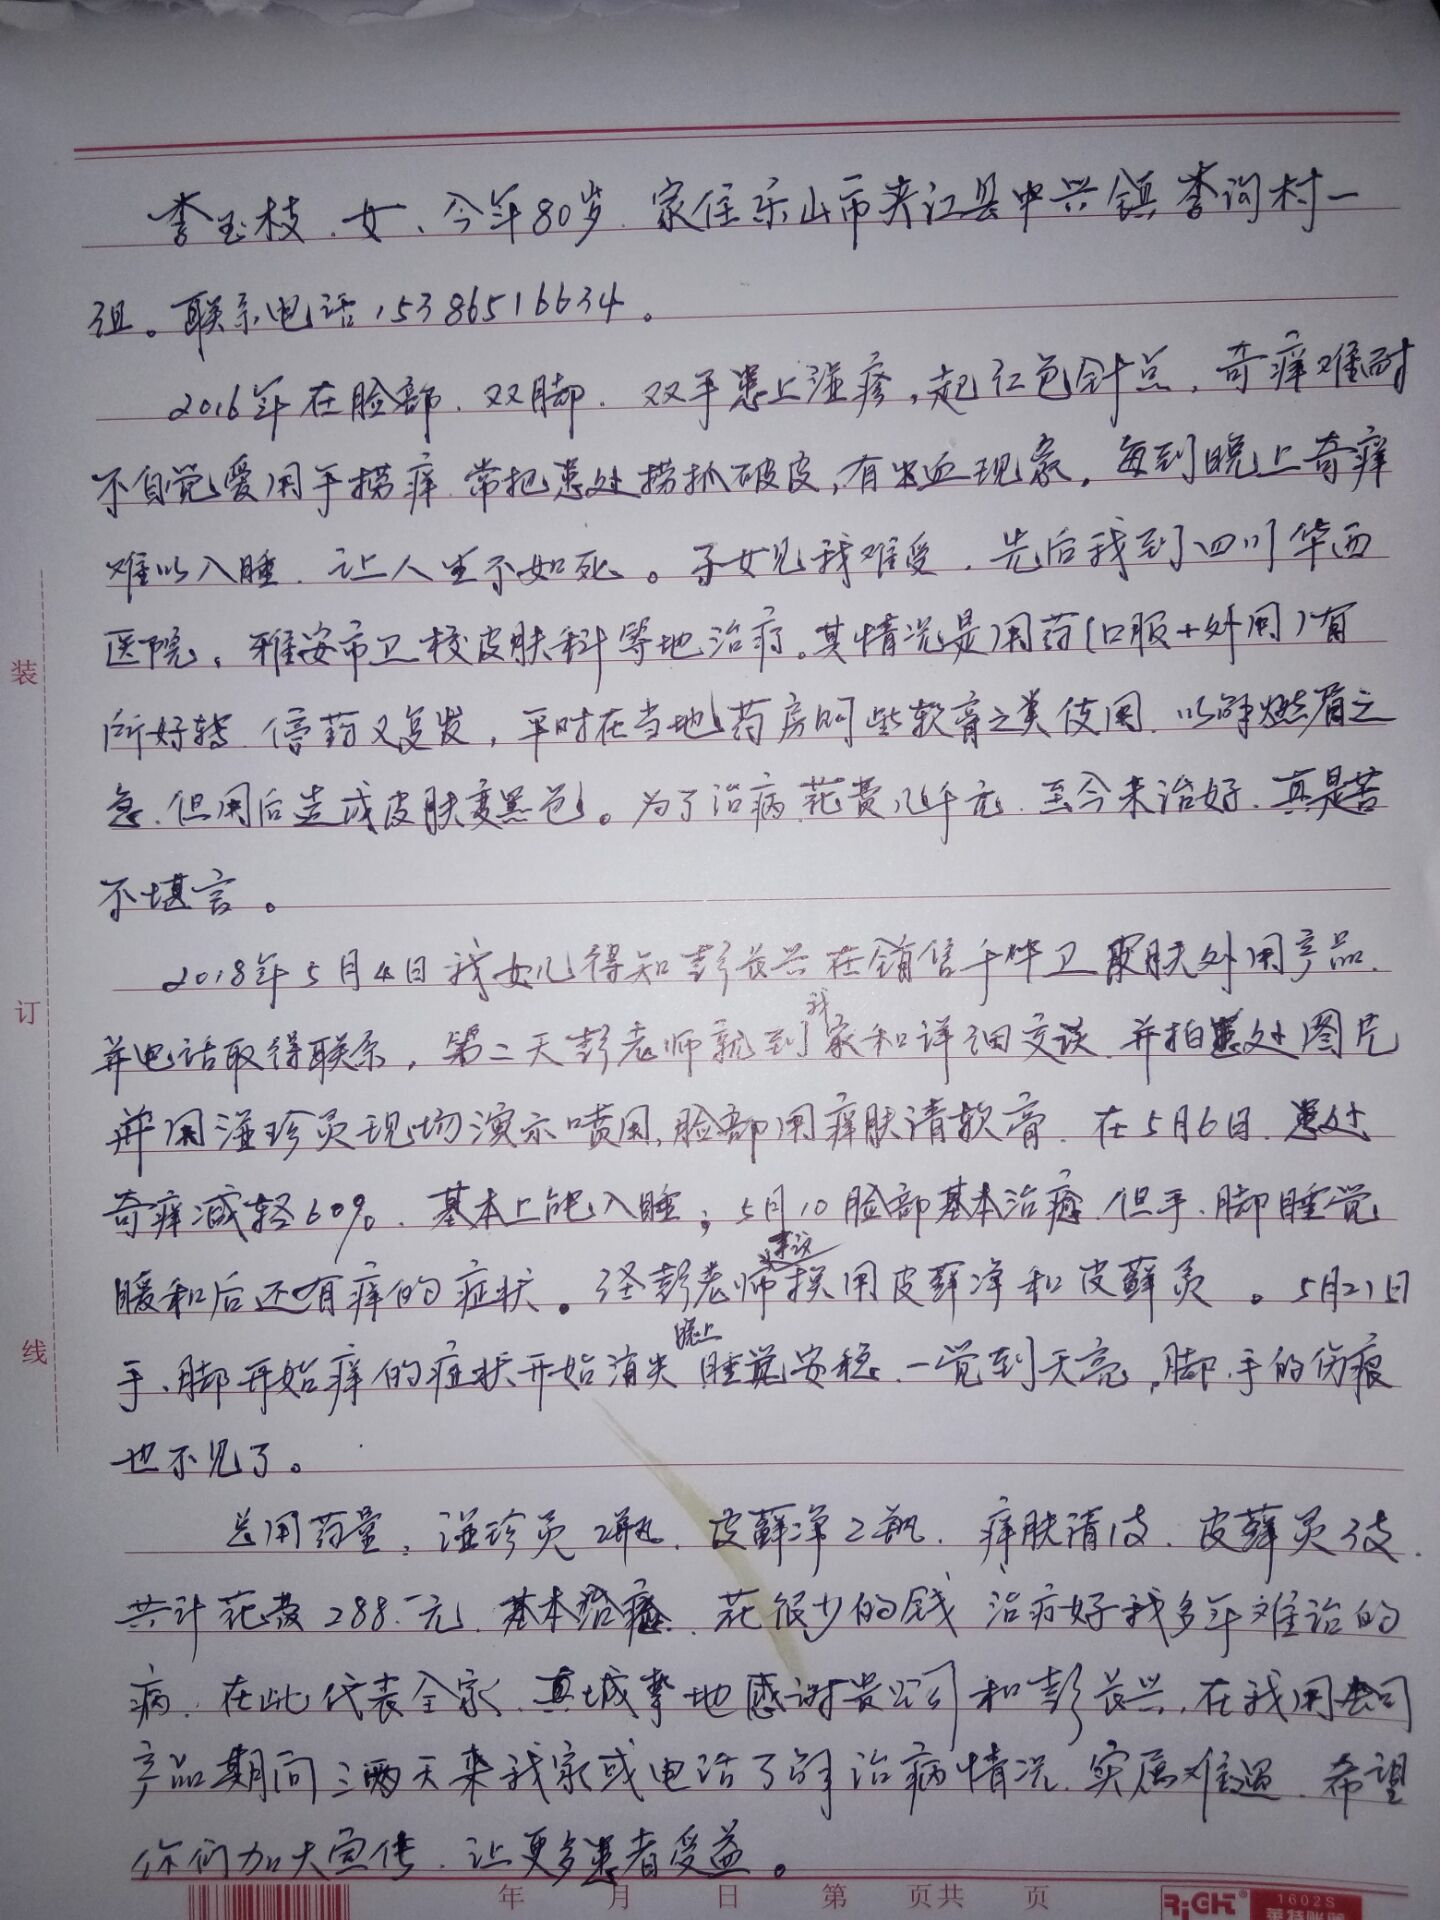 李玉枝、女、今年80岁、家住乐山市夹江县中兴镇李沟村一
组。联系电话15386516634。
2016年在脸部、双脚、双手患上湿疹,起红色针点,奇痒难耐
不自觉爱用手捞痒、常把患处捞抓破皮,有出血现象,每到晚上奇痒
难以入睡、让人生不如死。子女见我难受、先后我到四川华西
医院,雅安市卫校皮肤科等地治疗。其情况是用药(口服+外用)有
所好转、停药又复发,平时在当地药房购些软膏之类使用、以解燃眉之
急、但用后造成皮肤变黑色。为了治病花费几千元、至今未治好、真是苦
不堪言。
2018年5月4日我女儿得知彭长兴在销售千烨卫皮肤外用产品、
并电话取得联系,第二天彭老师就到我家和详细交谈、并拍患处图片
并用湿疹灵现场演示喷用,脸部用痒肤清软膏、在5月6日、患处
奇痒减轻60%、基本上能入睡;5月10脸部基本治愈、但手、脚睡觉
暖和后还有痒的症状。经彭老师建议换用皮藓净和皮藓灵。5月21日
手、脚开始痒的症状开始消失晚上睡觉安稳、一觉到天亮,脚、手的伤痕
也不见了。
总用药量:湿疹灵2瓶、皮藓净2瓶、痒肤清1支、皮藓灵3支、
共计花费288.一元、基本治愈、花很少的钱治疗好我多年难治的
病、在此代表全家、真城挚地感谢贵公司和彭长兴、在我用公司
产品期间三两天来我家或电话了解治病情况、实属难遇、希望
你们加大宣传、让更多患者受益。
装
订
线
年 月 日 第 页共 页
RiGHT®
1602S
莱特账簿